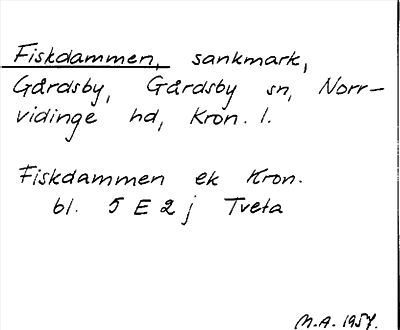 Fiskdammen, sankmark,
Gårdsby, Gårdsby sn, Norr-
vidinge hd, Kron. l.
Fiskdammen ek Kron.
bl. 5 E 2 j Tveta
M.A. 1957.